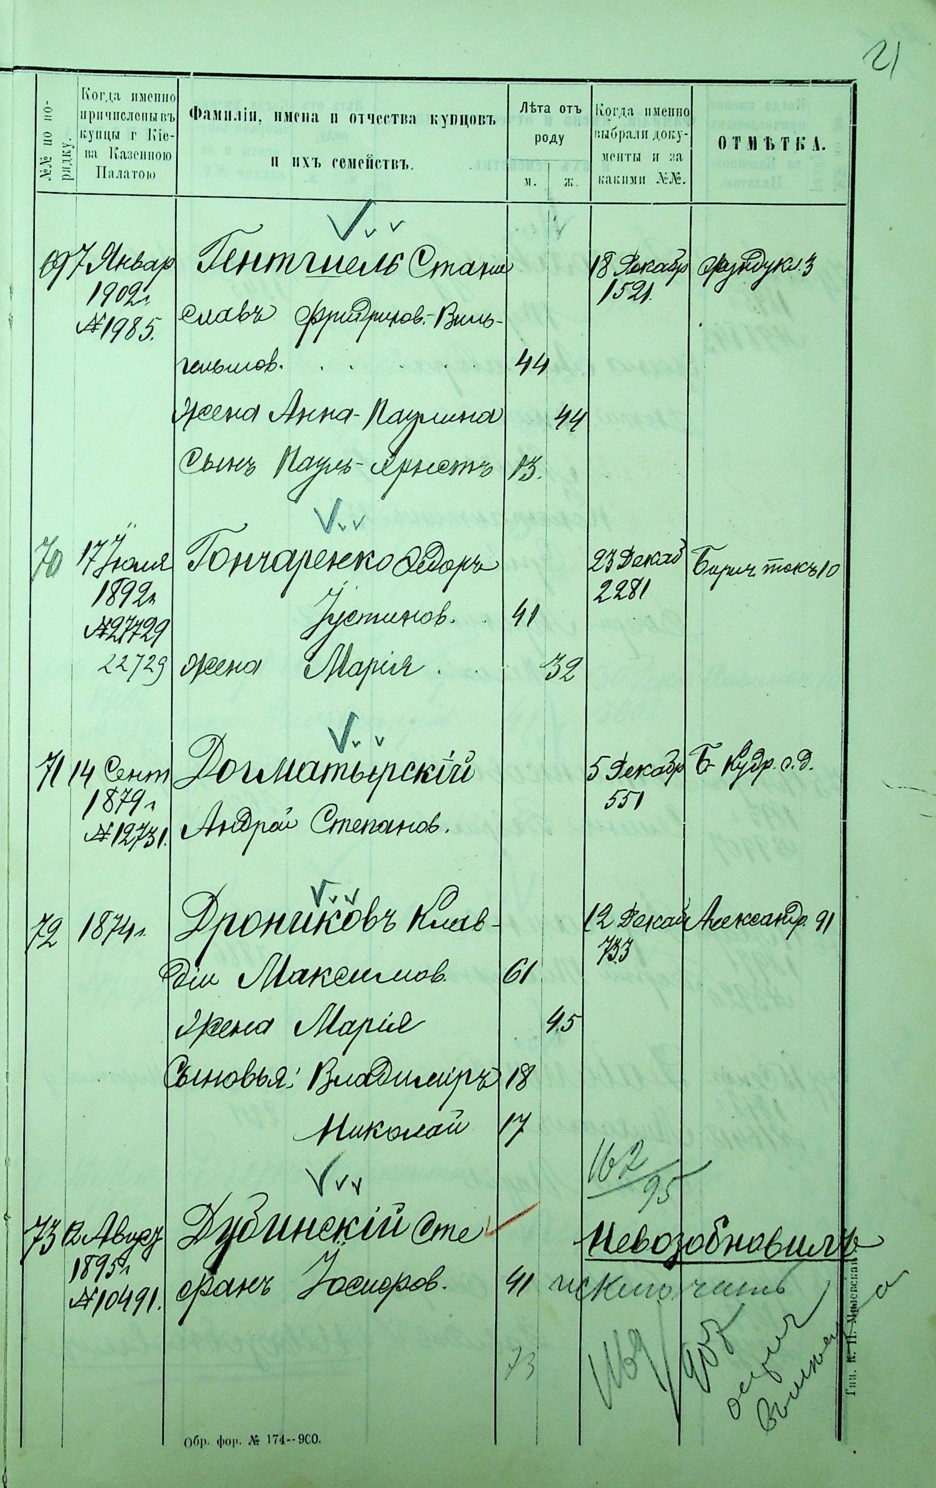 21
№№ по порядку.
Когда именно причислены въ купцы г Кіева Казенною Палатою
Фамиліи, имена и отчества купцовъ и ихъ семействъ.
Лѣта отъ роду
м. ж.
Когда именно выбрали документы и за какими №№.
ОТМѢТКА.
7 Январ Гентшель Стани 18 Декабр Фундукл. 3
1902 г. 1521.
№ 1985. славъ Фридрихов.-Виль-
гельмов. 44
Жена Анна-Паулина 44
Сынъ Пауль-Эрнстъ 13.
70 17 Іюля Гончаренко Ѳедоръ 23 Декаб 10
1892 г. 2281
Іустинов. 41
№ 27729
22729 жена Марія 32
71 14 Сент Догматырскій 5 Декабр Б- Кудр. с. д.
1879 г 551
№ 12731. Андрей Степанов.
72 1874 г. Дрониковъ Клав- 12 Декаб Александр. 91
733
дій Максимов. 61
Жена Марія 45
Сыновья: Владиміръ 18
Николай 17
167/95
73 2 Авгус Дубинскій Сте Невозобновилъ
1895 г
№ 10491. фанъ Іосифов. 41 исключить
73
169
Тип. К. Н. Милевскаго
Обр. фор. № 174--900.